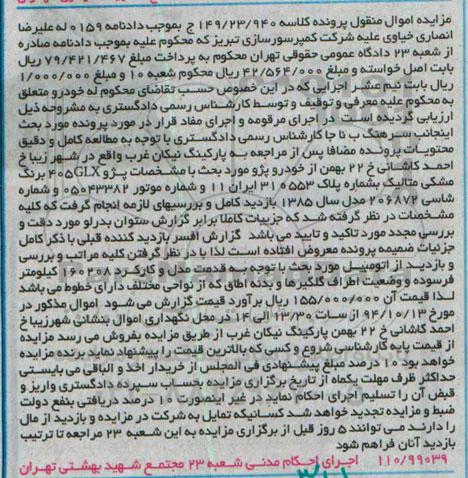 مزایده اموال منقول پرونده کلاسه ۱۴۹/۲۳/۹۴۰ ج بموجب دادنامه ۰۱۵۹ له علیرضا
انصاری خیاوی علیه شرکت کمپرسورسازی تبریز که محکوم علیه بموجب دادنامه صادره
از شعبه ۲۳ دادگاه عمومی حقوقی تهران محکوم به پرداخت مبلغ ۷۹/۴۲۱/۴۶۷ ریال
بابت اصل خواسته و مبلغ ۴۲/۵۶۴/۰۰۰ ریال محکوم شعبه ۱۰ و مبلغ ۱/۰۰۰/۰۰۰
ریال بابت نیم عشر اجرایی که در این خصوص حسب تقاضای محکوم له خودرو متعلق
به محکوم علیه معرفی و توقیف و توسط کارشناس رسمی دادگستری به مشروحه ذیل
ارزیابی گردیده است. در اجرای مرقومه و اجرای مفاد قرار در مورد پرونده مورد بحث
اینجانب سرهنگ ب نا جا کارشناس رسمی دادگستری با توجه به مطالعه کامل و دقیق
محتویات پرونده مضافا پس از مراجعه به پارکینگ نیکان غرب واقع در شهر زیبا خ
احمد کاشانی خ ۲۲ بهمن از خودرو پژو مورد بحث با مشخصات پژو ۴۰۵GLX برنگ
مشکی متالیک بشماره پلاک ۵۵۳ و ۳۱ ایران ۱۱ و شماره موتور ۰۵۰۴۳۳۸۲ و شماره
شاسی ۲۰۶۸۷۲ مدل سال ۱۳۸۵ بازدید کامل و بررسیهای لازمه انجام گرفت که کلیه
مشخصات در نظر گرفته شد که جزییات کاملا برابر گزارش ستوان بدرلو مورد دقت و
بررسی مجدد مورد تاکید و تایید می باشد گزارش افسر بازدید کننده قبلی با ذکر کامل
جزئیات ضمیمه پرونده معروض افتاده است لذا با در نظر گرفتن کلیه مراتب و بررسی
و بازدید از اتومبیل مورد بحث با توجه به قدمت مدل و کارکرد ۱۶۰۲۰۸ کیلومتر
فرسوده و وضعیت اطراف گلگیرها و بدنه اطاق که از نواحی مختلف دارای خطوط می باشد
لذا قیمت آن ۱۵۵/۰۰۰/۰۰۰ ریال برآورد قیمت گزارش می شود اموال مذکور در
مورخ ۹۴/۱۰/۱۳ از ساعت ۱۳/۳۰ الی ۱۴ در محل نگهداری اموال بنشانی شهرزیبا خ
احمد کاشانی خ ۲۲ بهمن پارکینگ نیکان غرب از طریق مزایده بفروش می رسد مزایده
از قیمت پایه کارشناسی شروع و کسی که بالاترین قیمت را پیشنهاد نماید برنده مزایده
خواهد بود ۱۰ درصد مبلغ پیشنهادی فی المجلس از خریدار اخذ و الباقی می بایستی
حداکثر ظرف مهلت یکماه از تاریخ برگزاری مزایده بحساب سپرده دادگستری واریز و
قبض آن را تسلیم اجرای احکام نماید در غیر اینصورت ۱۰ درصد دریافتی بنفع دولت
ضبط و مزایده تجدید خواهد شد کسانیکه تمایل به شرکت در مزایده و بازدید از مال
را دارند می توانند ۵ روز قبل از برگزاری مزایده به این شعبه ۲۳ مراجعه تا ترتیب
بازدید آنان فراهم شود
۱۱۰/۹۹۰۳۹ اجرای احکام مدنی شعبه ۲۳ مجتمع شهید بهشتی تهران